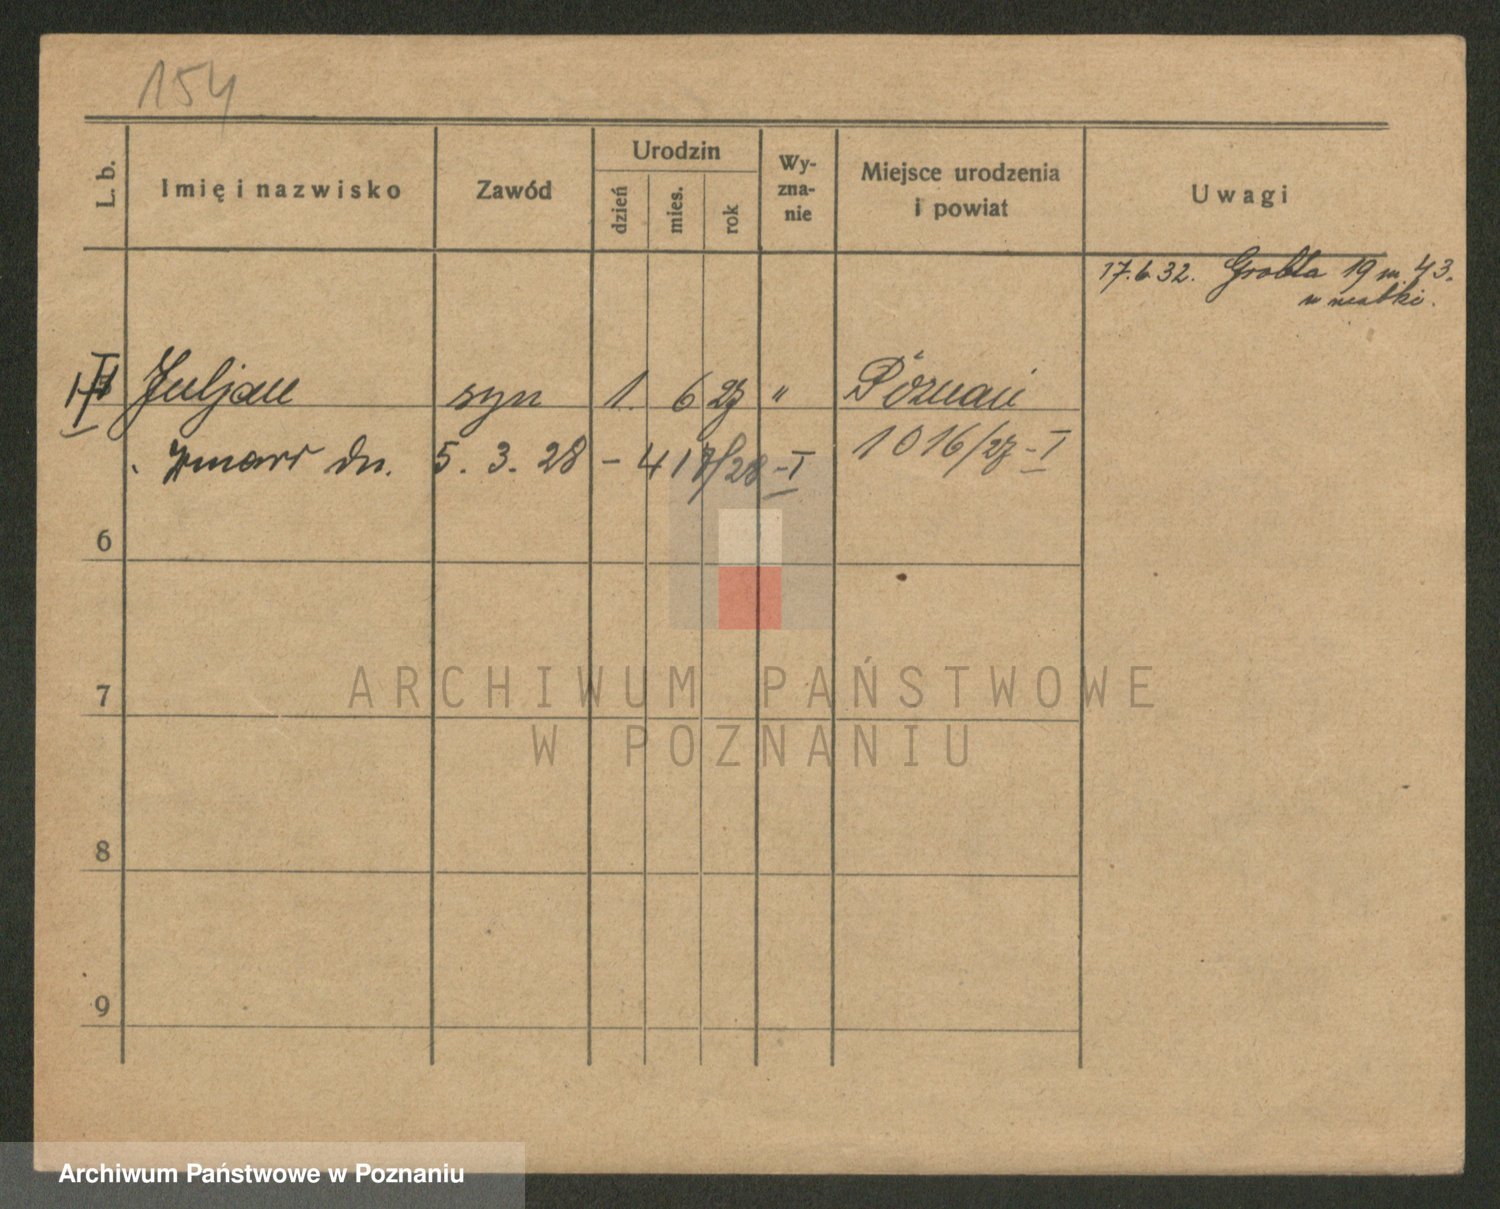 154
L. b.
Imię i nazwisko
Zawód
Urodzin
dzień
mies.
rok
Wy-
zna-
nie
Miejsce urodzenia
i powiat
Uwagi
17.6.32. Grobla 19 m 43.
u matki.
Juljan syn 1. 6 27 " Poznań
Zmarł dn. 5. 3. 28 – 417/28 – I
1016/27 – I
6
7
8
9
ARCHIWUM PAŃSTWOWE
W POZNANIU
Archiwum Państwowe w Poznaniu